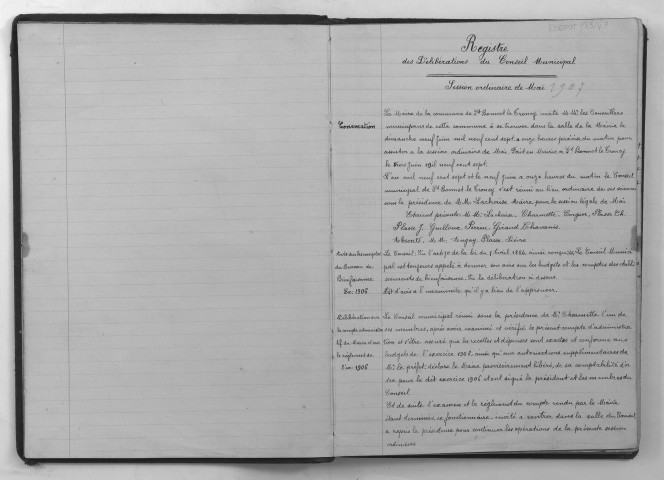 Registre
des Délibérations du Conseil Municipal
Session ordinaire de Mai 1907
Convocation
Le Maire de la commune de St Bonnet le Troncy invite MM. les Conseillers
municipaux de cette commune à se trouver dans la salle de la Mairie le
dimanche neuf Juin mil neuf cent sept à onze heures précises du matin pour
assister à la session ordinaire de Mai. Fait en Mairie à St Bonnet le Troncy
le trois Juin mil neuf cent sept.
L'an mil neuf cent sept et le neuf Juin à onze heures du matin le Conseil
municipal de St Bonnet le Troncy s'est réuni au lieu ordinaire de ses séances
sous la présidence de M. Lachaise Maire pour la session légale de Mai
Étaient présents MM. Lachaise, Charmette, Plasse Ch.
Plasse J. Guilloux, Perrin, Giraud, Chavanis.
Absents, MM. Plasse
Avis sur les comptes
du Bureau de
Bienfaisance
Ex. 1906
Le Conseil: Vu l'art 70 de la loi du 5 Avril 1884 ainsi conçu: Le Conseil Munici
pal est toujours appelé à donner son avis sur les budgets et les comptes des établis
sements de bienfaisance. Vu la délibération ci dessus
Est d'avis à l'unanimité qu'il y a lieu de l'approuver.
Délibération sur
le compte administra
tif du Maire et sur
le règlement de
l'ex. 1906
Le Conseil municipal réuni sous la présidence de Mr Charmette l'un de
ses membres, après avoir examiné et vérifié le présent compte d'administra
tion et s'être assuré que les recettes et dépenses sont exactes et conforme aux
budgets de l'exercice 1906, ainsi qu'aux autorisations supplémentaires de
Mr le préfet; déclare le Maire provisoirement libéré, de sa comptabilité d'or
dre pour le dit exercice 1906 et ont signé le président et les membres du
Conseil
Et de suite l'examen et le règlement du compte rendu par le Maire
étant terminés ce fonctionnaire, invité à rentrer dans la salle du Conseil
a repris la présidence pour continuer les opérations de la présente session
ordinaire